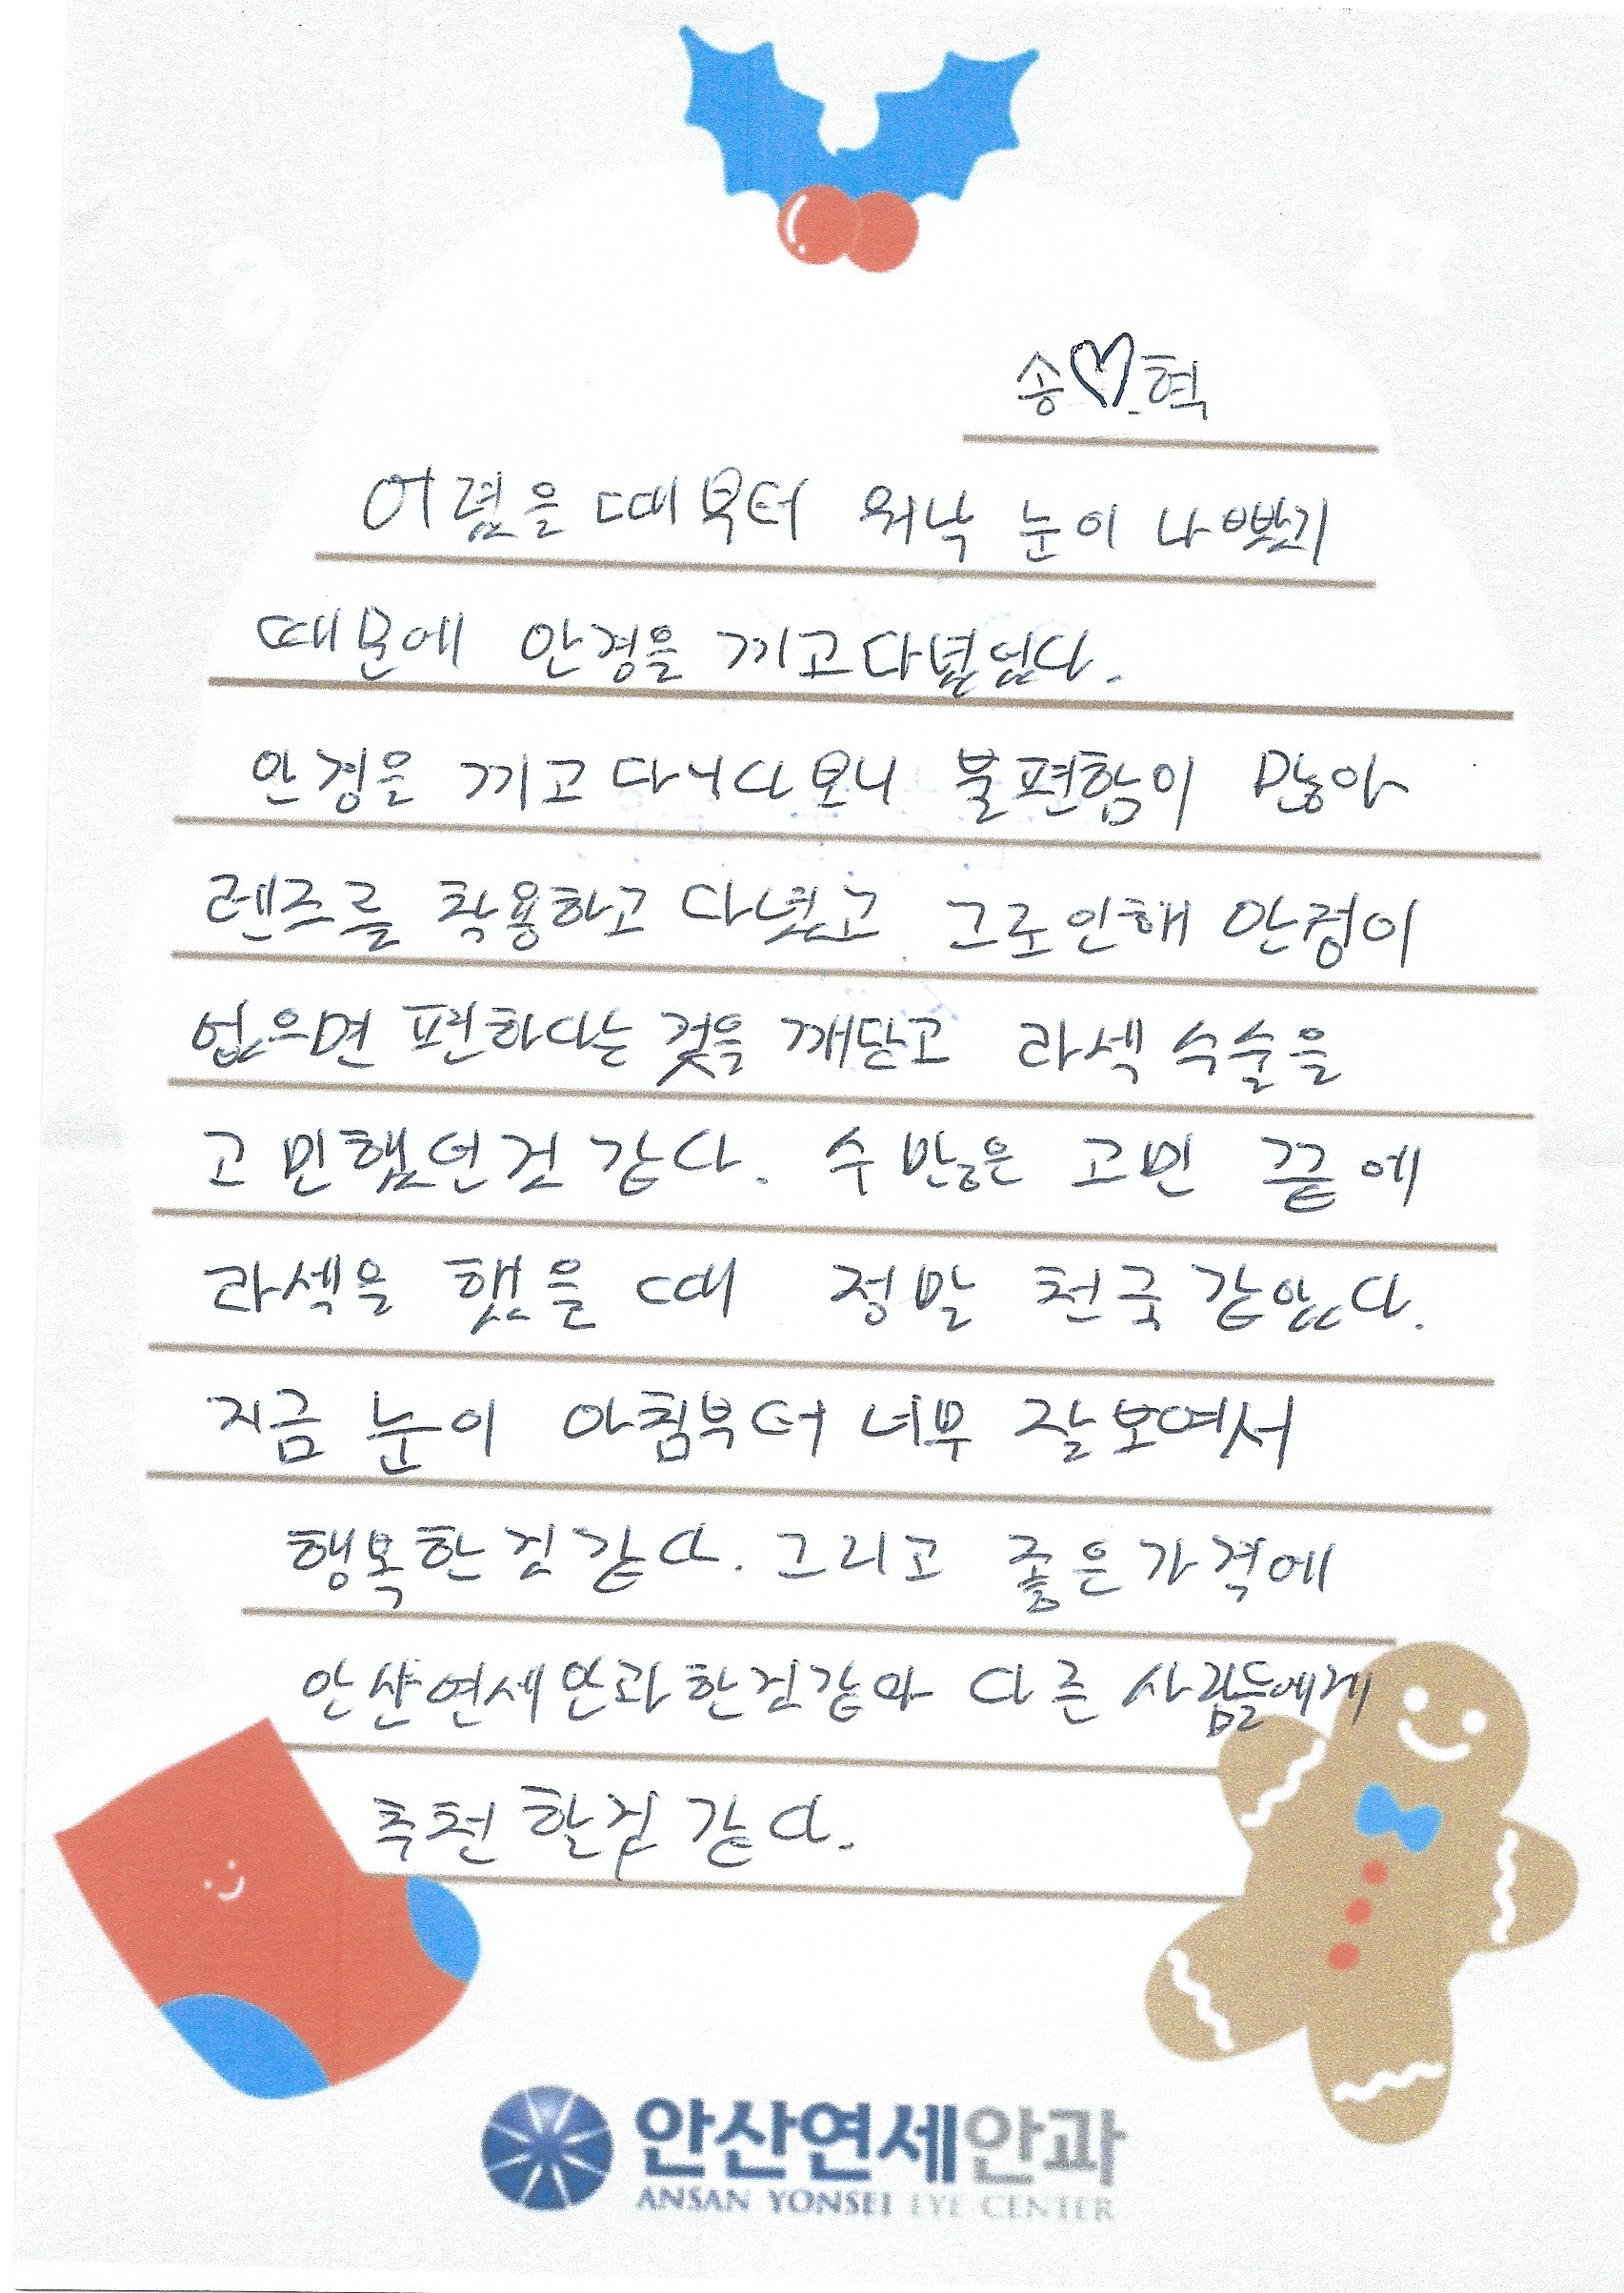 송♡혁
어렸을때부터 워낙 눈이 나빴기
때문에 안경을 끼고다녔었다.
안경을 끼고다니다보니 불편함이 많아
렌즈를 착용하고 다녔고 그로인해 안경이
없으면 편하다는 것을 깨닫고 라섹 수술을
고민했던것 같다. 수많은 고민 끝에
라섹을 했을 때 정말 천국 같았다.
지금 눈이 아침부터 너무 잘보여서
행복한것같다. 그리고 좋은가격에
안산연세안과한것같아 다른 사람들에게
추천할것 같다.
안산연세안과
ANSAN YONSEI EYE CENTER